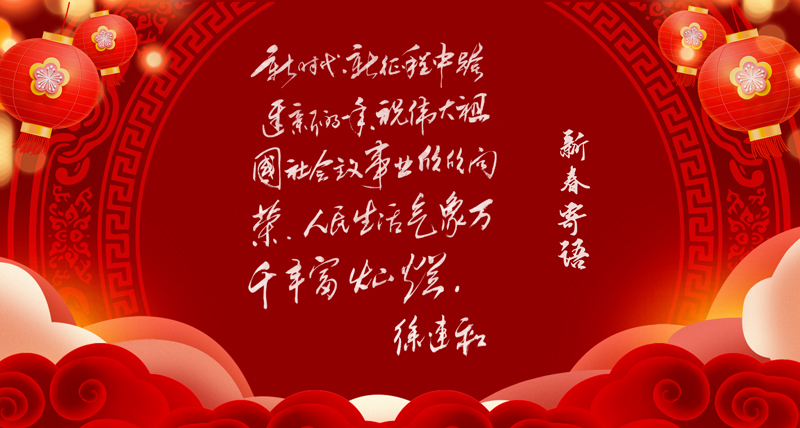 新时代、新征程中踏
进新的一年,祝伟大祖
國社会主义事业欣欣向
荣、人民生活气象万
千丰富灿烂.
新春寄语